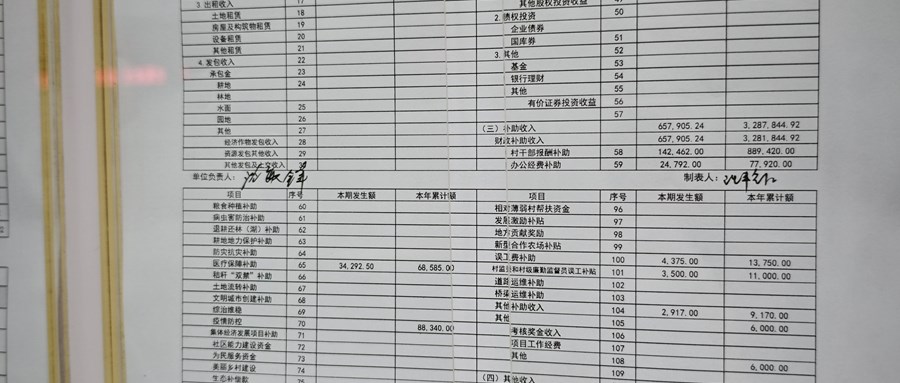 3. 出租收入 17
土地租赁 18
房屋及构筑物租赁 19
设备租赁 20
其他租赁 21
4. 发包收入 22
承包金 23
耕地 24
林地
水面 25
园地 26
其他 27
经济作物发包收入 28
资源发包其他收入 29
其他发包及上交收入
其他股权投资收益
2. 债权投资 50
企业债券
国库券 51
3. 其他 52
基金 53
银行理财 54
其他 55
有价证券投资收益 56
57
(三) 补助收入 657,905.24 3,287,844.92
财政补助收入 657,905.24 3,281,844.92
村干部报酬补助 58 142,462.00 889,420.00
办公经费补助 59 24,792.00 77,920.00
单位负责人:
制表人:
项目 序号 本期发生额 本年累计额
粮食种植补助 60
病虫害防治补助 61
退耕还林(湖)补助 62
耕地地力保护补助 63
防灾抗灾补助 64
医疗保障补助 65 34,292.50 68,585.00
秸秆“双禁”补助 66
土地流转补助 67
文明城市创建补助 68
综治维稳 69
疫情防控 70
集体经济发展项目补助 71 88,340.00
社区能力建设资金 72
为民服务资金 73
美丽乡村建设 74
生态补偿款 75
项目 序号 本期发生额 本年累计额
相对薄弱村帮扶资金 96
发展激励补贴 97
地方贡献奖励 98
新型合作农场补贴 99
误工费补助 100 4,375.00 13,750.00
村监委和村级廉勤监督员误工补贴 101 3,500.00 11,000.00
道路运维补助 102
桥梁运维补助 103
其他补助收入 104 2,917.00 9,170.00
其他 105 6,000.00
考核奖金收入 106
项目工作经费 107
其他 108
109 6,000.00
(四) 其他收入